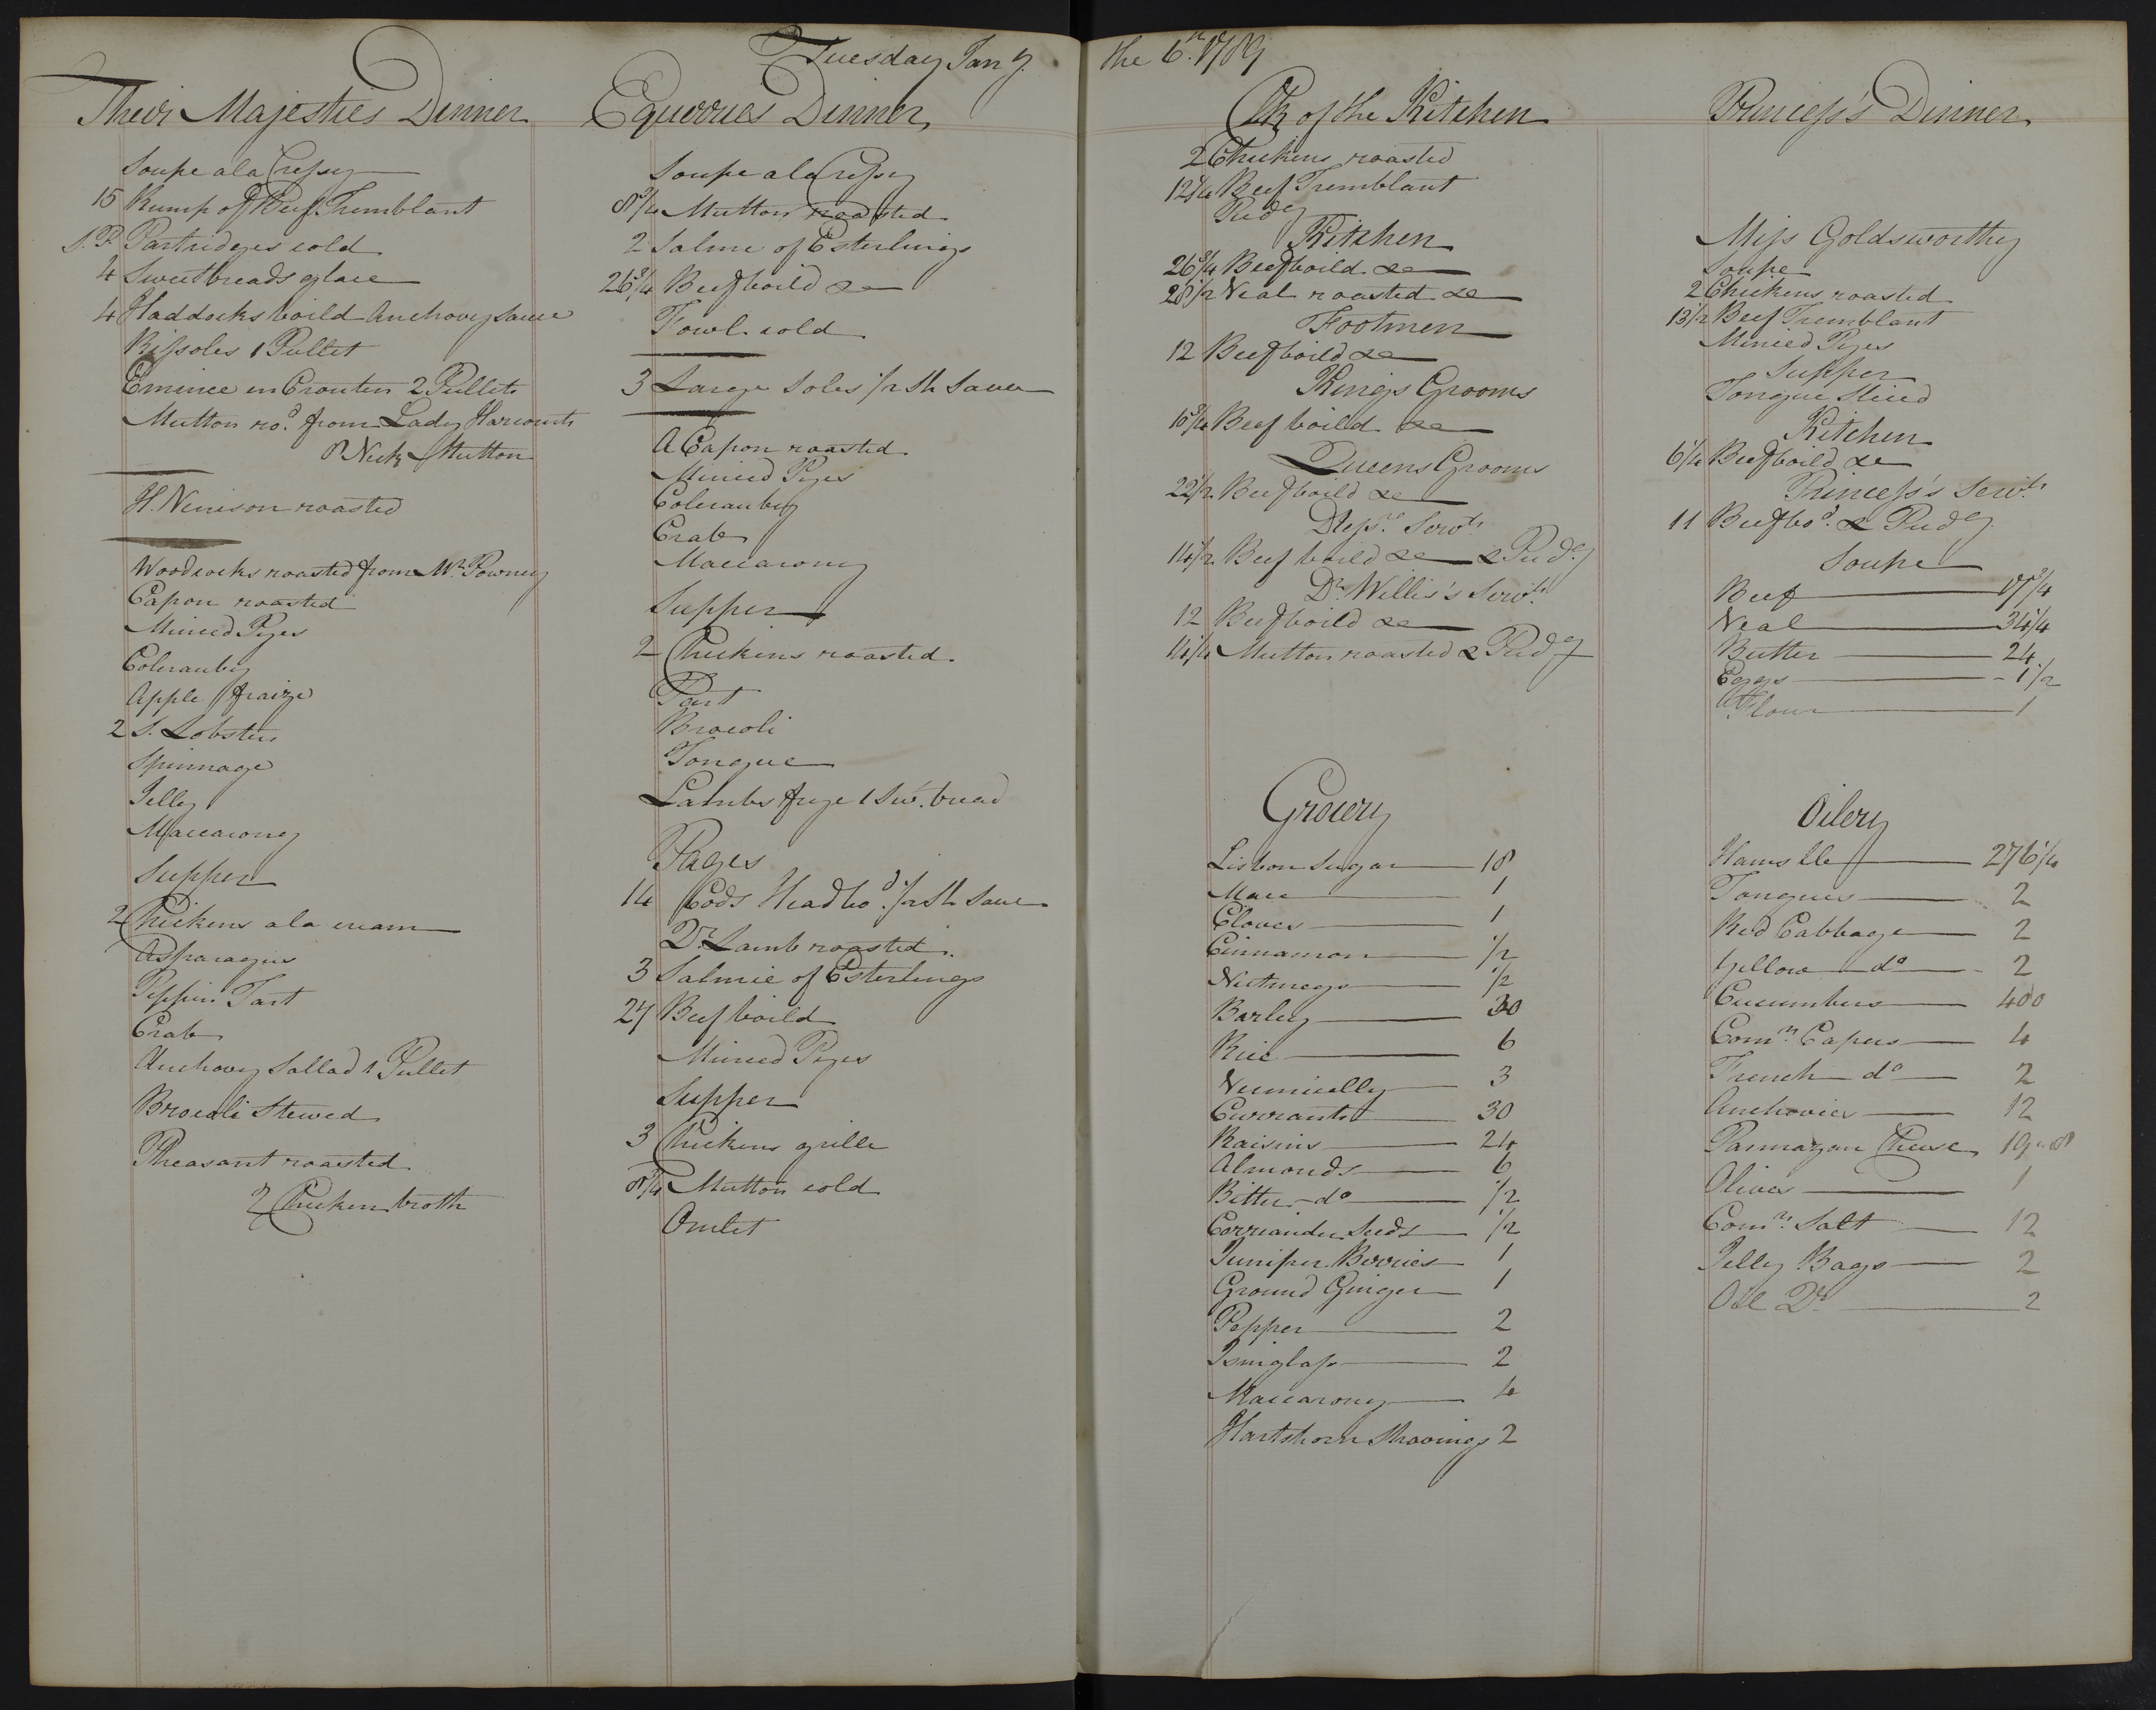 Tuesday Jany. the 6th. 1789
Their Majesties Dinner
Soupe a la Cressy
15 Rump of Beef Tremblant
Partridges cold
4 Sweetbreads glace
4 Haddocks boild Anchovy Sauce
Rissoles 1 Pullet
Emince en Crouten 2 Pullets
Mutton rod. from Lady Harcourts
8 Neck Mutton
H. Venison roasted
Woodcocks roasted from Mr. Powney
Capon roasted
Minced Pyes
Coleraubey
Apple fraize
2 S. Lobsters
Spinnage
Jelly
Maccarony
Supper
2 Chickens a la cream
Asparagus
Peppin Tart
Crab
Anchovy Sallad 1 Pullet
Brocoli Stewed
Pheasant roasted
2 Chicken broth
Equerries Dinner
Soupe a la Cressy
8 3/4 Mutton roasted
2 Salme of Esterlings
26 3/4 Beef boild &c
Fowl cold
3 Large Soles 1/2 Sh Sauce
A Capon roasted
Minced Pyes
Coleraubey
Crab
Maccarony
Supper
2 Chickens roasted
Tart
Brocoli
Tongue
Lambs frye 1 Sw. bread
Pages
14 Cods Head bod. 1/2 Sh Sauce
Qr. Lamb roasted
3 Salmie of Esterlings
27 Beef boild
Minced Pyes
Supper
3 Chickens grille
8 1/4 Mutton cold
Omlet
Clk of the Kitchen
2 Chickens roasted
12 1/4 Beef Tremblant
Pudg
Kitchen
26 3/4 Beef boild &c
28 1/2 Veal roasted &c
Footmen
12 Beef boild &c
Kings Grooms
10 3/4 Beef boild &c
Queens Grooms
22 1/2 Beef boild &c
Servts.
14 1/2 Beef boild &c & Pudg
Dr. Willis's Servts.
12 Beef boild &c
11 1/4 Mutton roasted & Pudg
Grocery
Lisbon Sugar 18
Mace 1
Cloves 1
Cinnamon 1/2
Nutmegs 1/2
Barley 30
Rice 6
Vermicelly 3
Currants 30
Raisins 24
Almonds 6
Bitter do 1/2
Corriander Seeds 1/2
Juniper Berries 1
Ground Ginger 1
Pepper 2
Isinglass 2
Maccarony 4
Hartshorn Shavings 2
Princess's Dinner
Miss Goldsworthy
Soupe
2 Chickens roasted
13 1/2 Beef Tremblant
Minced Pyes
Supper
Tongue Sliced
Kitchen
6 1/4 Beef boild &c
Princess's Servts.
11 Beef bod. & Pudg
Soupe
Beef 17 3/4
Veal 34 1/4
Butter 24
Eggs 1/2
Flour 1
Oilery
Hams 276 1/4
Tongues 2
Red Cabbage 2
Yellow do 2
Cucumbers 400
Comn. Capers 4
French do 2
Anchovies 12
Parmazan Cheese 19 " 8
Olives 1
Comn. Salt 12
Jelly Bags 2
Oil 2